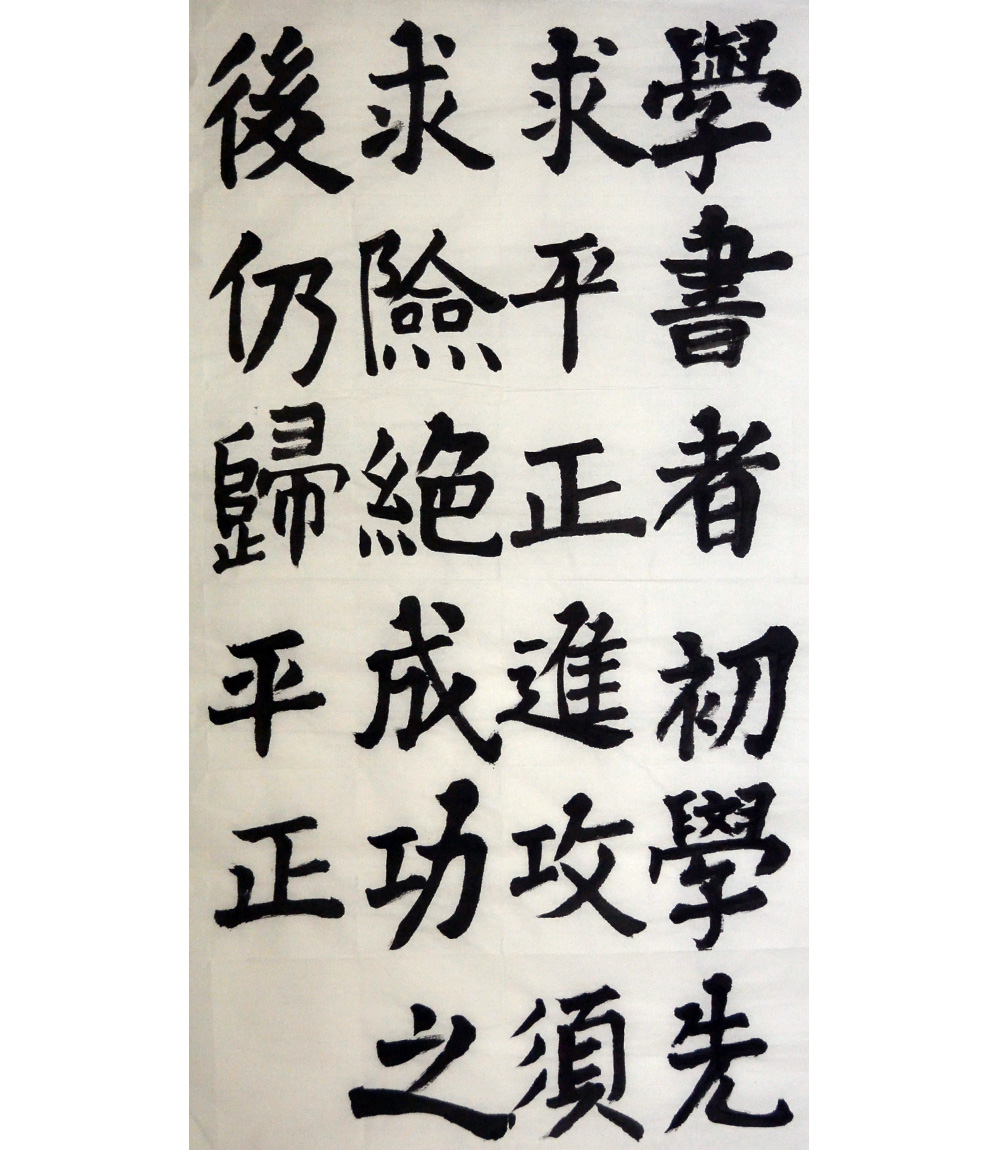 學書者初學先
求平正進攻須
求險絕成功之
後仍歸平正